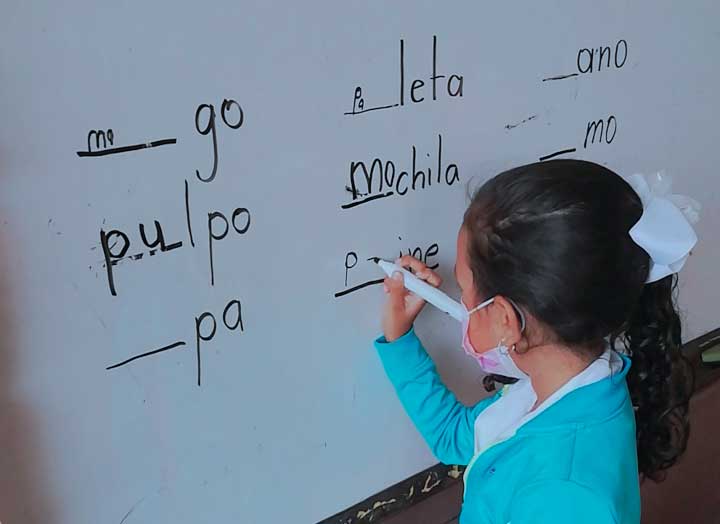 ma___ go
pulpo
___ pa
pa__leta
mochila
p ine
__ano
__mo